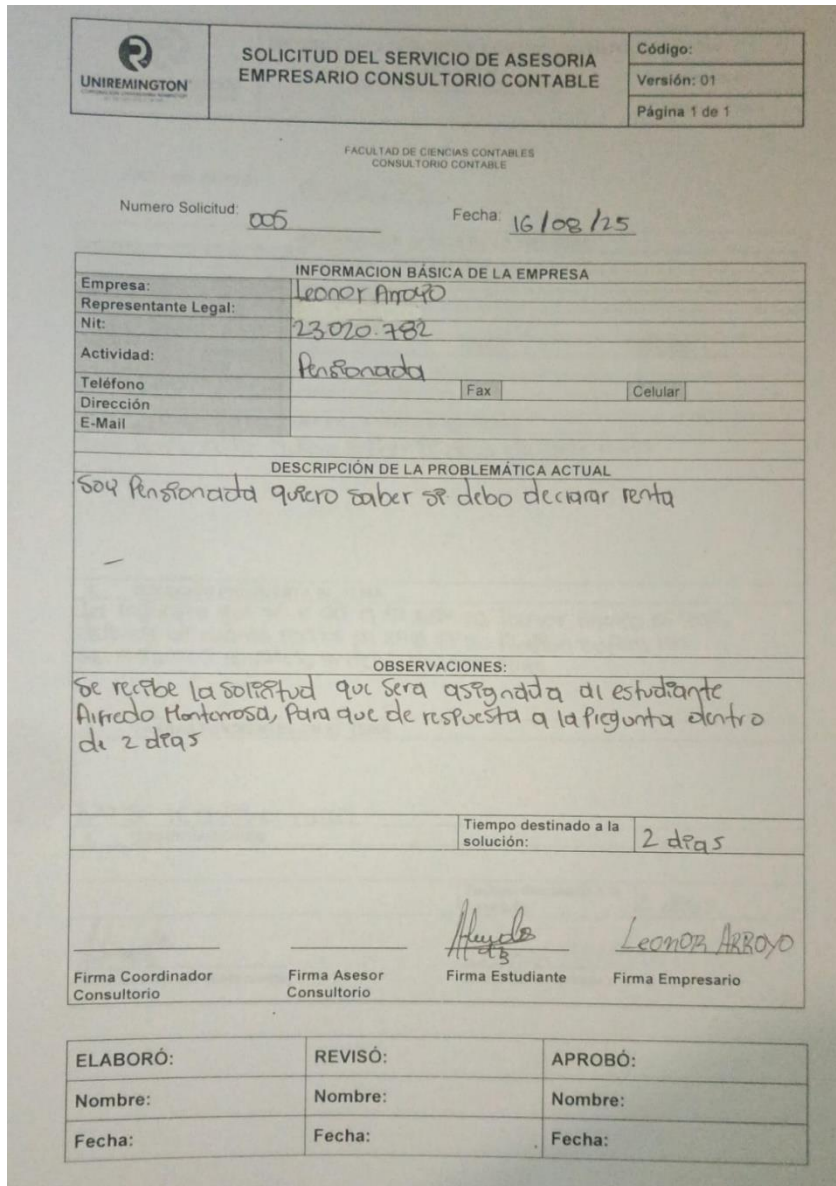 UNIREMINGTON
SOLICITUD DEL SERVICIO DE ASESORIA
EMPRESARIO CONSULTORIO CONTABLE
Código:
Versión: 01
Página 1 de 1
FACULTAD DE CIENCIAS CONTABLES
CONSULTORIO CONTABLE
Numero Solicitud: 005
Fecha: 16/08/25
INFORMACION BÁSICA DE LA EMPRESA
Empresa: Leonor Arroyo
Representante Legal:
Nit: 23020.782
Actividad: Pensionada
Teléfono Fax Celular
Dirección
E-Mail
DESCRIPCIÓN DE LA PROBLEMÁTICA ACTUAL
Soy Pensionada quiero saber si debo declarar renta
OBSERVACIONES:
Se recibe la solisitud que sera asignada al estudiante
Alfredo Monterrosa, Para que de respuesta a la Pregunta dentro
de 2 dias
Tiempo destinado a la
solución: 2 dias
Leonor ARROYO
Firma Coordinador
Consultorio
Firma Asesor
Consultorio
Firma Estudiante
Firma Empresario
ELABORÓ: REVISÓ: APROBÓ:
Nombre: Nombre: Nombre:
Fecha: Fecha: Fecha: